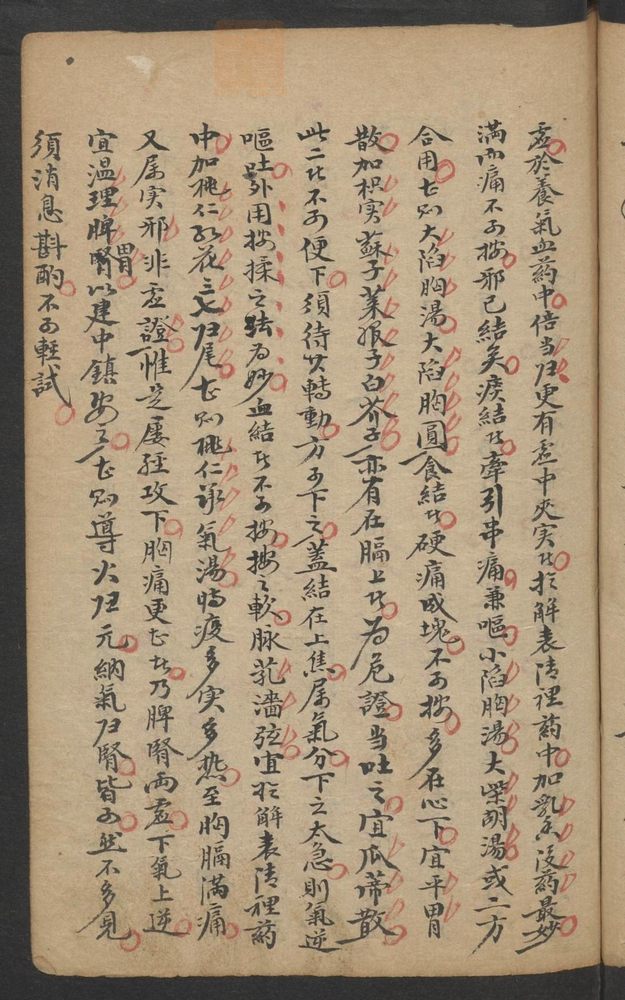 虛於養氣血葯中倍当归更有虛中夾实者於解表清裡葯中加乳香沒葯最妙
滿而痛不可按邪已結矣痰結者牽引串痛兼嘔小陷胸湯大柴胡湯或二方
合用甚則大陷胸湯大陷胸圓食結者硬痛成塊不可按多在心下宜平胃
散加枳实蘇子萊菔子白芥子亦有在膈上者為危證当吐之宜瓜蒂散
此二者不可便下須待其轉動方可下之蓋結在上焦属氣分下之太急則氣逆
嘔吐外用按揉之法為妙血結者不可按按之軟脉芤濇弦宜於解表清裡葯
中加桃仁紅花三七归尾甚則桃仁承氣湯時疫多实多热至胸膈滿痛
又属实邪非虛證惟是屢經攻下胸痛更甚者乃脾腎兩虛下氣上逆
宜溫理脾胃腎以建中鎮安之甚則導火归元納氣归腎皆可然不多見
須消息斟酌不可輕試